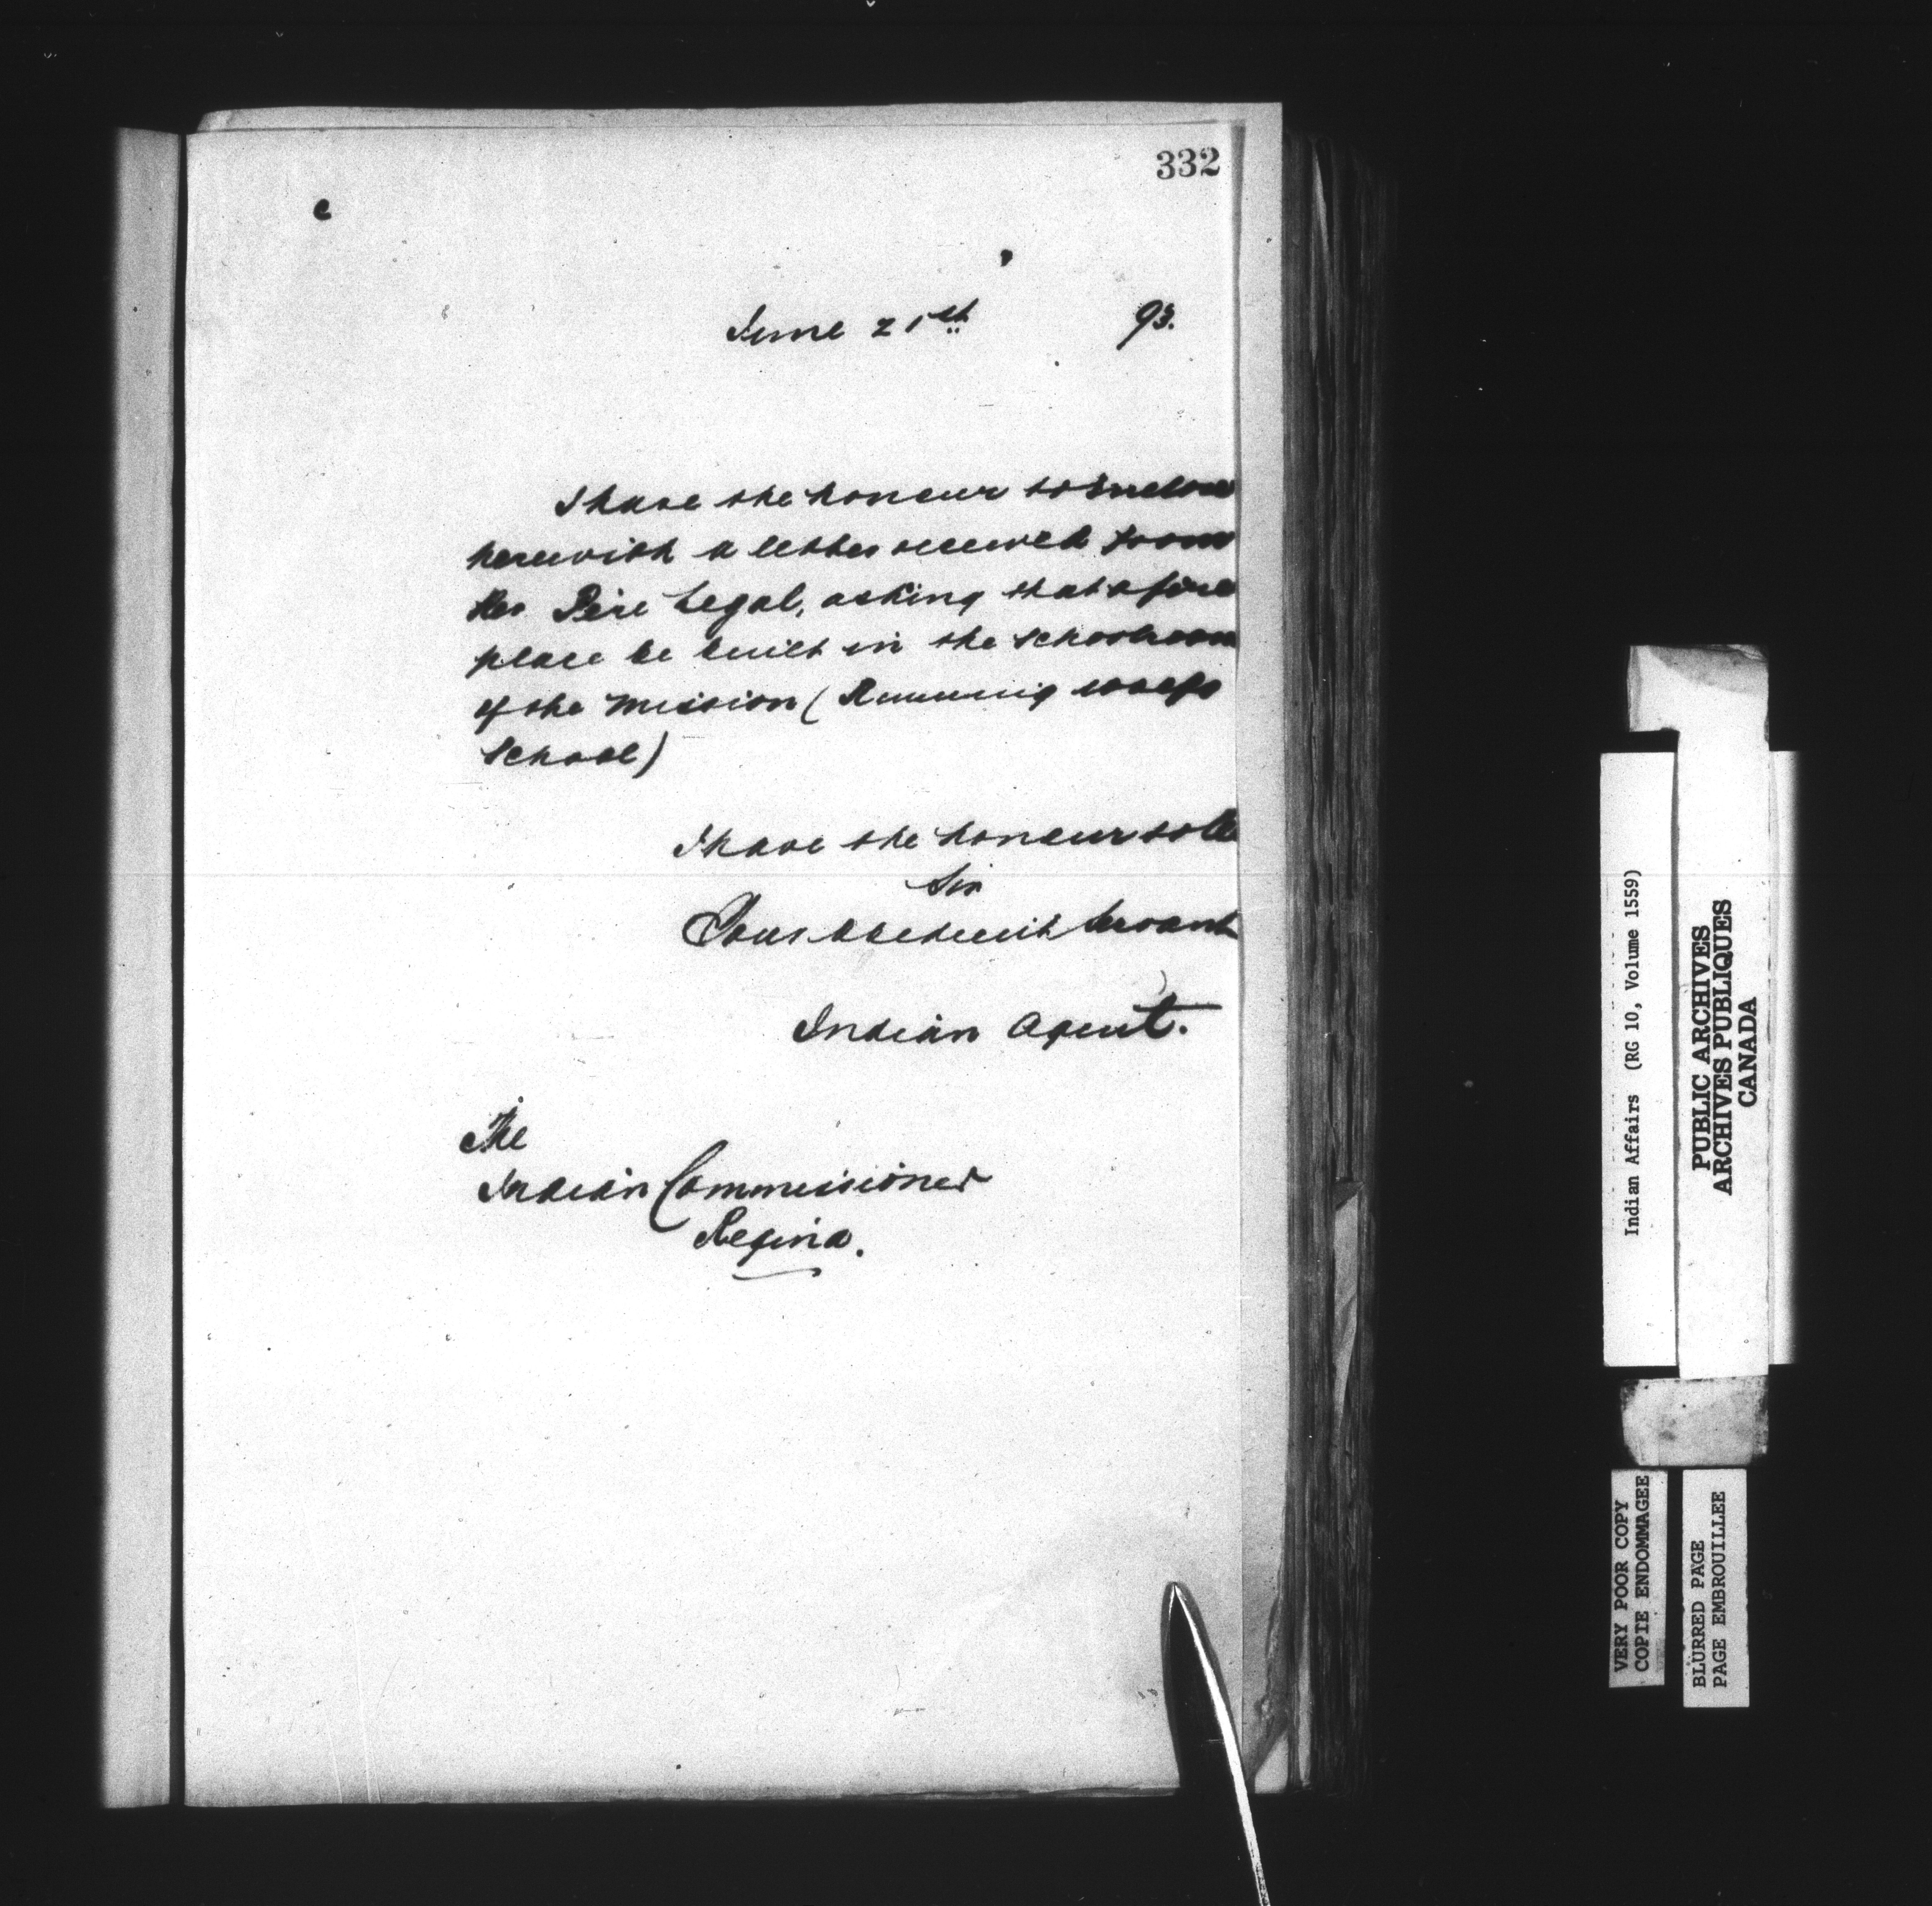 332
June 21st 93.
I have the honour to enclose
herewith a letter received from
Rev Père Legal, asking that a fire
place be built in the schoolroom
of the Mission (Running wolfs
School)
I have the honour to be
Sir
Your obedient servant
Indian Agent.
The
Indian Commissioner
Regina.
Indian Affairs (RG 10, Volume 1559)
PUBLIC ARCHIVES
ARCHIVES PUBLIQUES
CANADA
VERY POOR COPY
COPIE ENDOMMAGEE
BLURRED PAGE
PAGE EMBROUILLEE